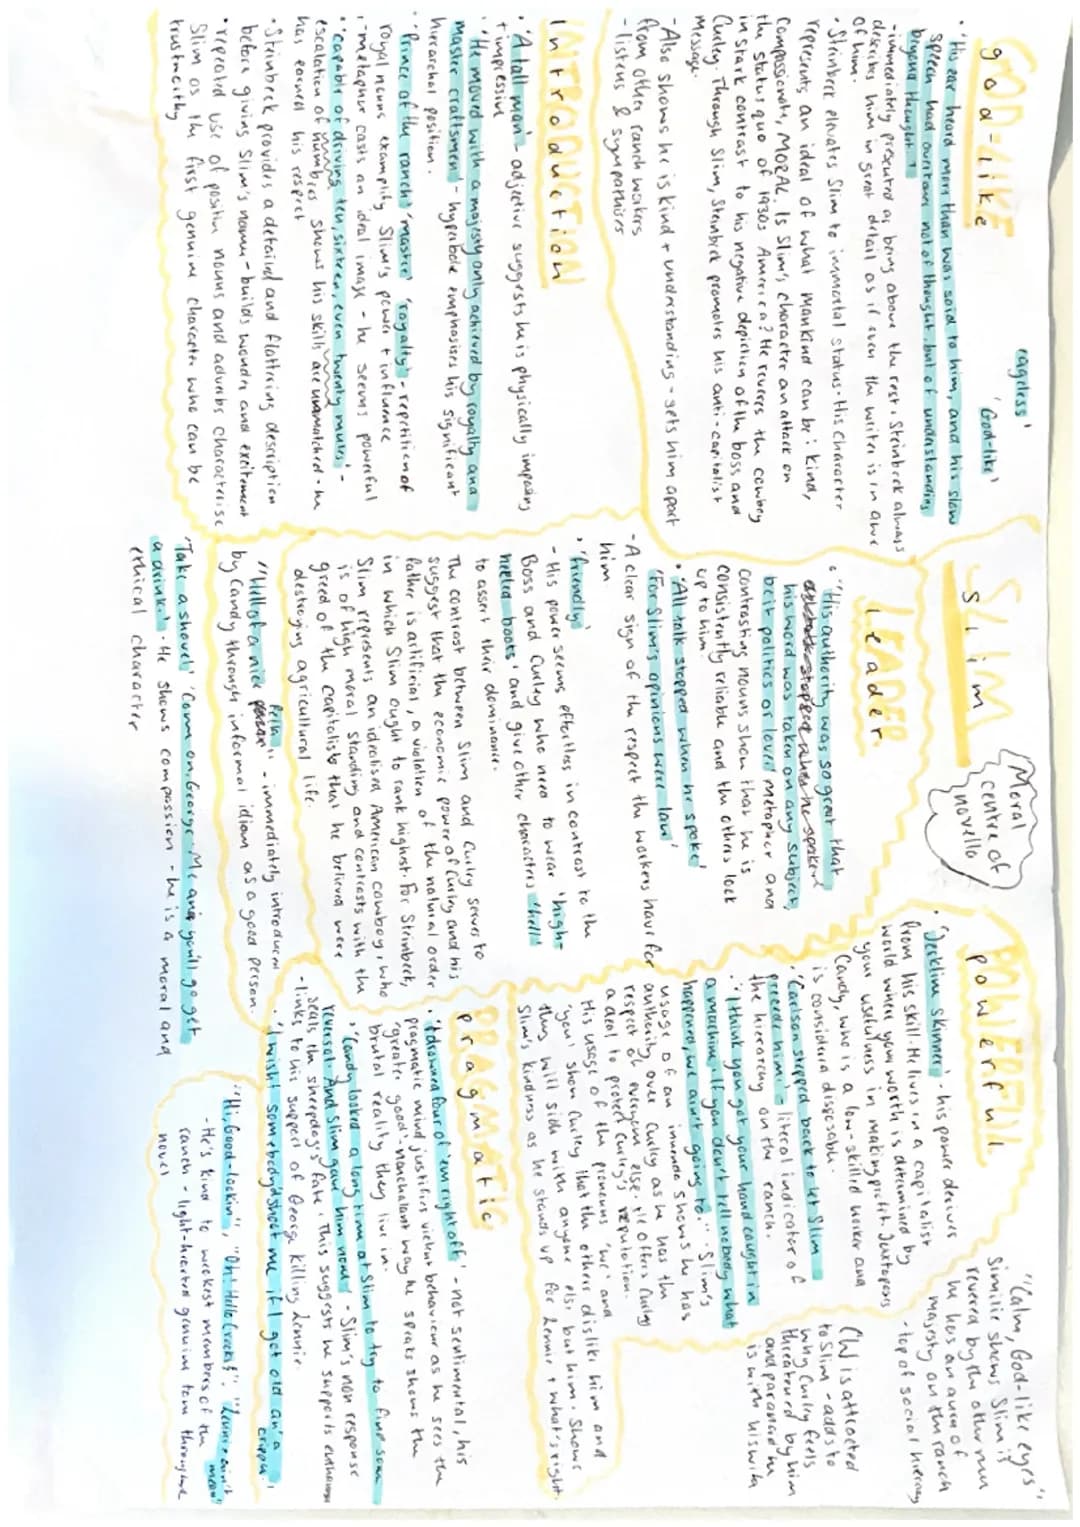 SLIM
Slim
Moral
centre of
novella
GOD-LIKE
god-like
'ageless'
'God-like'
• 'His ear heard more than was said to him, and his slow
speech had overtones not of thought, but of understanding
beyond thought.'
- immediately presented as being above the rest. Steinbeck always
describes him in great detail as if even the writer is in awe
of him.
• Steinbeck elevates Slim to immortal status. His character
represents an ideal of what mankind can be: kind,
compassionate, MORAL. Is Slim's character an attack on
the status quo of 1930s America? He reveres the cowboy
in stark contrast to his negative depiction of the boss and
Curley. Through Slim, Steinbeck promotes his anti-capitalist
message.
- Also shows he is kind + understanding - sets him apart
from other ranch workers
- listens & sympathises
INTRODUCTION
Introduction
• 'A tall man' - adjective suggests he is physically imposing
+ impressive
• 'He moved with a majesty only achieved by royalty and
master craftsmen' - hyperbole emphasises his significant
hierarchal position.
• 'Prince of the ranch' 'master' 'royalty' - repetition of
royal nouns exemplify Slim's power + influence
- metaphor casts an ideal image - he seems powerful
• 'capable of driving ten, sixteen, even twenty mules' -
escalation of numbers shows his skills are unmatched - he
has earned his respect
• Steinbeck provides a detailed and flattering description
before giving Slim's name - builds wonder and excitement
• repeated use of positive nouns and adverbs characterise
Slim as the first genuine character who can be
trustworthy
LEADER
Leader
• "His authority was so great that
his word was taken on any subject,
be it politics or love" metaphor and
contrasting nouns show that he is
consistently reliable and the others look
up to him.
• 'All talk stopped when he spoke'
'For Slim's opinions were law'
- A clear sign of the respect the workers have for
him
• 'friendly'
- His power seems effortless in contrast to the
Boss and Curley who need to wear 'high-
heeled boots' and give other characters 'hell'
to assert their dominance.
The contrast between Slim and Curley serves to
suggest that the economic power of Curley and his
father is artificial, a violation of the natural order
in which Slim ought to rank highest. For Steinbeck,
Slim represents an idealised American cowboy, who
is of high moral standing and contrasts with the
greed of the capitalists that he believed were
destroying agricultural life.
"Hell of a nice fella" - immediately introduced
by Candy through informal idiom as a good person.
'Take a shovel' 'Come on, George. Me and you'll go get
a drink.' - He shows compassion - he is a moral and
ethical character
POWERFUL
powerful
• 'Jerkline skinner' - his power derives
from his skill. He lives in a capitalist
world where your worth is determined by
your usefulness in making profit. Juxtaposes
Candy, who is a low-skilled worker and
is considered disposable.
• 'Carlson stepped back to let Slim
precede him' - literal indicator of
the hierarchy on the ranch.
• 'I think you got your hand caught in
a machine. If you don't tell nobody what
happened, we ain't going to.' - Slim's
usage of an shows he has
authority over Curley as he has the
respect of everyone else. He offers Curley
a deal to protect Curley's reputation.
His usage of the pronouns 'we' and
'you' show Curley that the others dislike him and
they will side with anyone else but him. Shows
Slim's kindness as he stands up for Lennie + what's right.
"Calm, God-like eyes"
Simile shows Slim is
revered by the other men
he has an aura of
majesty on the ranch
- top of social
CW is attracted
to Slim - adds to
why Curley feels
threatened by him
and paranoid he
is with his wife
PRAGMATIC
pragmatic
• 'I drowned four of 'em right off' - not sentimental, his
pragmatic mind justifies violent behaviour as he sees the
'greater good' - nonchalant way he speaks shows the
brutal reality they live in.
• 'Candy looked a long time at Slim to try to find some
reversal. And Slim gave him none' - Slim's non response
seals the sheepdog's fate. This suggests he supports euthanasia
- links to his support of George killing Lennie.
• 'I wisht somebody'd shoot me if I got old an' a
cripple.'
"Hi, Good-lookin'", "Oh! Hello Crooks!", "Lennie ain't
mean"
- He's kind to weakest members of the
ranch - light-hearted genuine tone throughout
novel